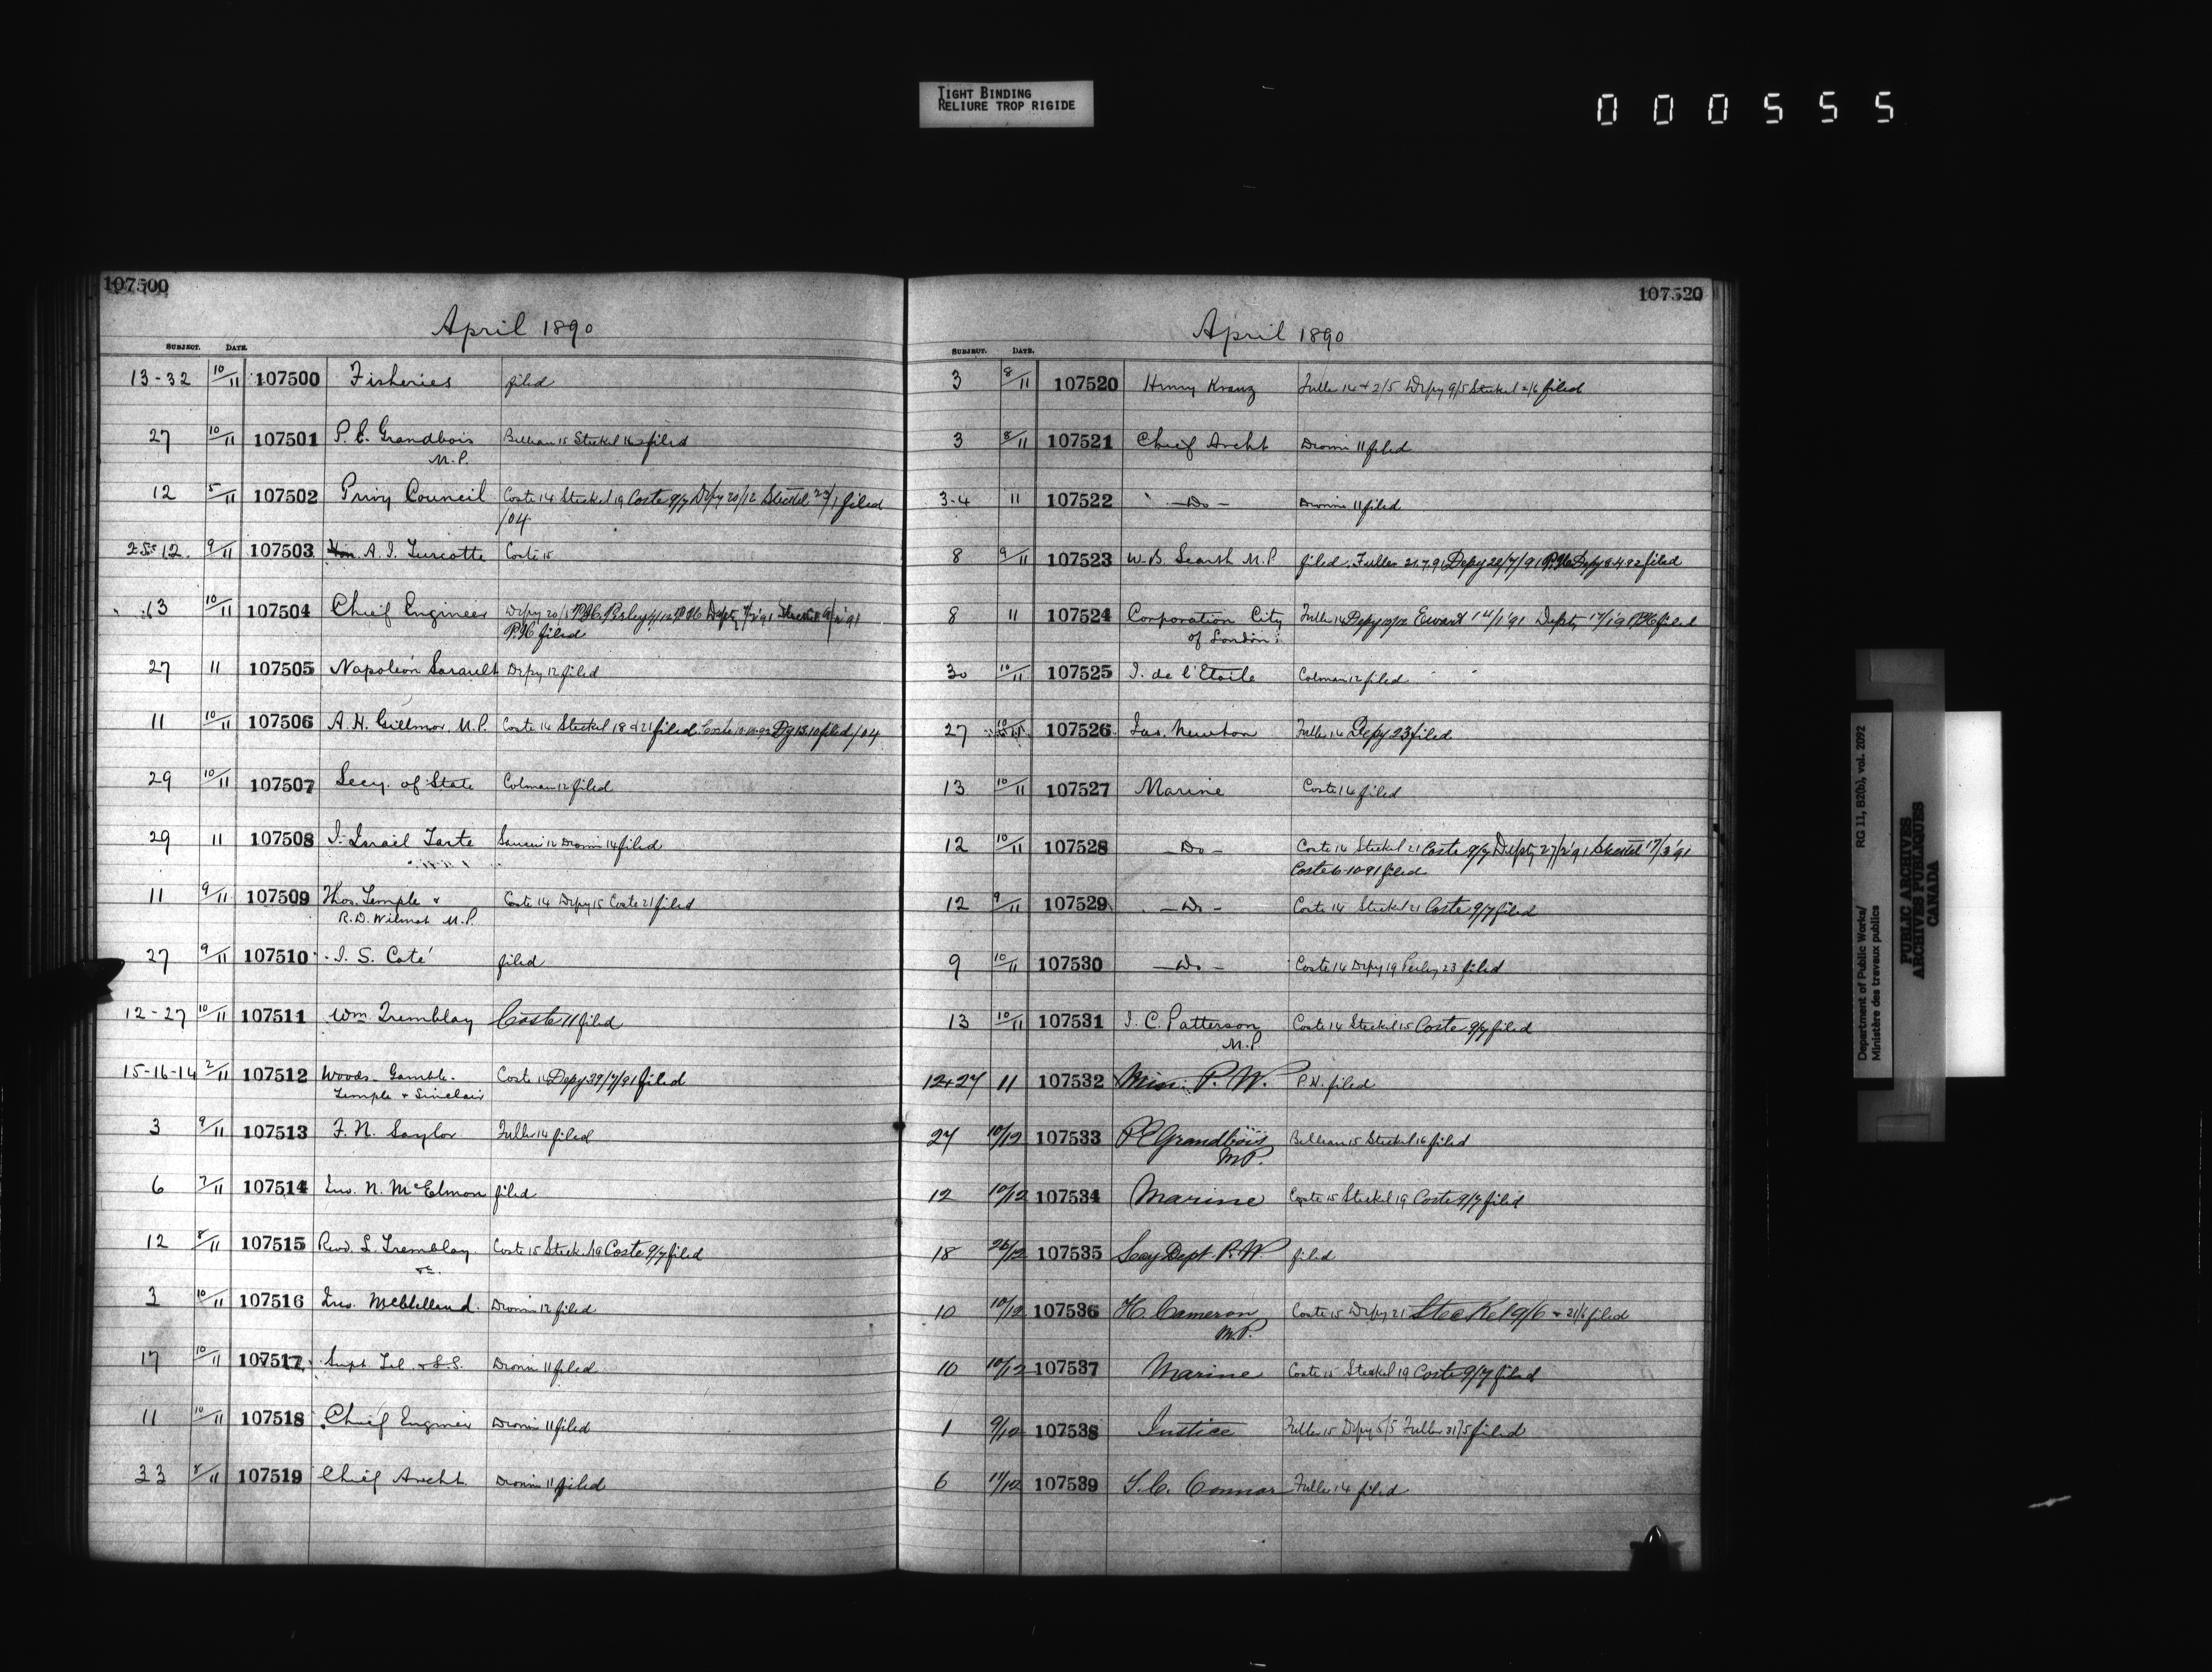 TIGHT BINDING
RELIURE TROP RIGIDE
000555
107500
April 1890
SUBJECT. DATE.
13-32 10/11 107500 Fisheries filed
27 10/11 107501 P. E. Grandbois Belleau 15 Steckel 16 filed
M.P.
12 5/11 107502 Privy Council Coste 14 Steckel 19 Coste 9/7 Depy 20/12 Steckel 23/1 filed
/04
12 9/11 107503 A. J. Turcotte Coste 15
13 10/11 107504 Chief Engineer Depy 20/5 P.H. Perley
P.H. filed
27 11 107505 Napoleon Sarault Depy 12 filed
11 10/11 107506 A. H. Gillmor M.P. Coste 14 Steckel 18 & 21 filed Coste 10-10-92 Dy 13.10 filed /04
29 10/11 107507 Secy. of State Colman 12 filed
29 11 107508 J. Israel Tarte 12 Dionne 14 filed
11 9/11 107509 Thos. Temple & Coste 14 Depy 15 Coste 21 filed
R. D. Wilmot M.P.
27 9/11 107510 J. S. Coté filed
12-27 10/11 107511 Wm. Tremblay Coste 11 filed
15-16-14 2/11 107512 Woods. Gamble. Coste 14 Depy /7/91 filed
Temple & Sinclair
3 9/11 107513 F. N. Saylor Fuller 14 filed
6 7/11 107514 Jno. N. McElmon filed
12 8/11 107515 Revd. L. Tremblay Coste 15 Steck. 19 Coste 9/7 filed
3 10/11 107516 Jno. McClelland. Dionne 12 filed
17 10/11 107517 Supt Tel. & S.S. Dionne 11 filed
11 10/11 107518 Chief Engineer Dionne 11 filed
33 8/11 107519 Chief Archt. Dionne 11 filed
107520
April 1890
SUBJECT. DATE.
3 8/11 107520 Henry Kranz Fuller 14 & 2/5 Depy 9/5 Steckel 2/6 filed
3 8/11 107521 Chief Archt Dionne 11 filed
3-4 11 107522 - Do - Dionne 11 filed
8 9/11 107523 W. B. Scarth M.P filed. Fuller 21.7.91 Depy 22/7/91 P.H. Depy 8.4.92 filed
8 11 107524 Corporation City Fuller 14 Depy 10/12 Ewart 14/1'91 Depty 17/1'9 P.H. filed
of London.
30 10/11 107525 J. de l'Etoile Colman 12 filed
27 10/11 107526 Jas. Newton Fuller 14 Depy 23 filed
13 10/11 107527 Marine Coste 14 filed
12 10/11 107528 - Do - Coste 14 Steckel 21 Coste 9/7 Depty 27/2'91 Steckel 17/3'91
Coste 6-10-91 filed
12 9/11 107529 - Do - Coste 14 Steckel 21 Coste 9/7 filed
9 10/11 107530 - Do - Coste 14 Depy 19 Perley 23 filed
13 10/11 107531 J. C. Patterson Coste 14 Steckel 15 Coste 9/7 filed
M.P.
12+27 11 107532 Min. P. W. P.H. filed
27 10/12 107533 P E Grandbois Belleau 15 Steckel 16 filed
M.P.
12 10/12 107534 Marine Coste 15 Steckel 19 Coste 9/7 filed
18 26/12 107535 Secy Dept. P. W. filed
10 10/12 107536 H. Cameron Coste 15 Depy 21 Steckel 9/6 & 21/6 filed
M.P.
10 10/12 107537 Marine Coste 15 Steckel 19 Coste 9/7 filed
1 9/12 107538 Justice Fuller 15 Depy 5/5 Fuller 31/5 filed
6 11/12 107539 J. C. Connor Fuller 14 filed
Department of Public Works/ RG 11, B2(b), vol. 2092
Ministère des travaux publics
PUBLIC ARCHIVES
ARCHIVES PUBLIQUES
CANADA